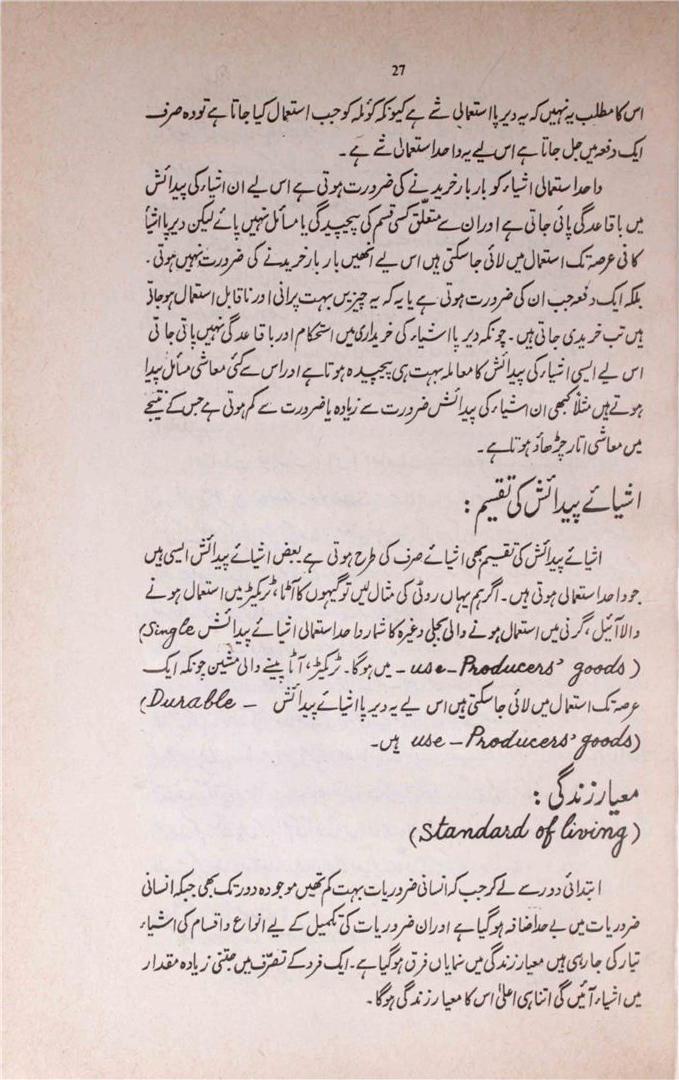 27
اس کا مطلب یہ نہیں کہ یہ دیرپا استعمالی شے ہے کیونکہ کوئلہ کو جب استعمال کیا جاتا ہے تو وہ صرف
ایک دفعہ میں جل جاتا ہے اس لیے یہ واحد استعمالی شے ہے ۔
واحد استعمالی اشیاء کو بار بار خریدنے کی ضرورت ہوتی ہے اس لیے ان اشیاء کی پیدائش
میں باقاعدگی پائی جاتی ہے اور ان سے متعلّق کسی قسم کی پیچیدگی یا مسائل نہیں پائے لیکن دیرپا اشیأ
کافی عرصہ تک استعمال میں لائی جاسکتی ہیں اس لیے انھیں بار بار خریدنے کی ضرورت نہیں ہوتی ۔
بلکہ ایک دفعہ جب ان کی ضرورت ہوتی ہے یا یہ کہ یہ چیزیں بہت پرانی اور ناقابل استعمال ہوجاتی
ہیں تب خریدی جاتی ہیں ۔ چونکہ دیرپا اشیاء کی خریداری میں استحکام اور باقاعدگی نہیں پاتی جاتی
اس لیے ایسی اشیاء کی پیدائش کا معاملہ بہت ہی پیچیدہ ہوتا ہے اور اس سے کئی معاشی مسائل پیدا
ہوتے ہیں مثلاً کبھی ان اشیاء کی پیدائش ضرورت سے زیادہ یا ضرورت سے کم ہوتی ہے جس کے نتیجے
میں معاشی اتار چڑھاؤ ہوتا ہے ۔
اشیائے پیدائش کی تقسیم :
اشیائے پیدائش کی تقسیم بھی اشیائے صرف کی طرح ہوتی ہے بعض اشیائے پیدائش ایسی ہیں
جو واحد استعمالی ہوتی ہیں ۔ اگر ہم یہاں روٹی کی مثال لیں تو گیہوں کا آٹا ، ٹریکٹر میں استعمال ہونے
والا آئیل ، گرنی میں استعمال ہونے والی بجلی وغیرہ کا شمار واحد استعمالی اشیائے پیدائش (Single
use – Producers' goods) – میں ہوگا ۔ ٹریکٹر ، آٹا پیسنے والی مشین چونکہ ایک
عرصہ تک استعمال میں لائی جاسکتی ہیں اس لیے یہ دیرپا اشیائے پیدائش (Durable –
use – Producers' goods) ہیں ۔
معیار زندگی :
(Standard of living)
ابتدائی دور سے لے کر جب کہ انسانی ضروریات بہت کم تھیں موجودہ دور تک بھی جبکہ انسانی
ضروریات میں بے حد اضافہ ہوگیا ہے اور ان ضروریات کی تکمیل کے لیے انواع و اقسام کی اشیاء
تیار کی جارہی ہیں معیار زندگی میں نمایاں فرق ہوگیا ہے ۔ ایک فرد کے تصرّف میں جتنی زیادہ مقدار
میں اشیاء آئیں گی اتنا ہی اعلیٰ اس کا معیار زندگی ہوگا ۔